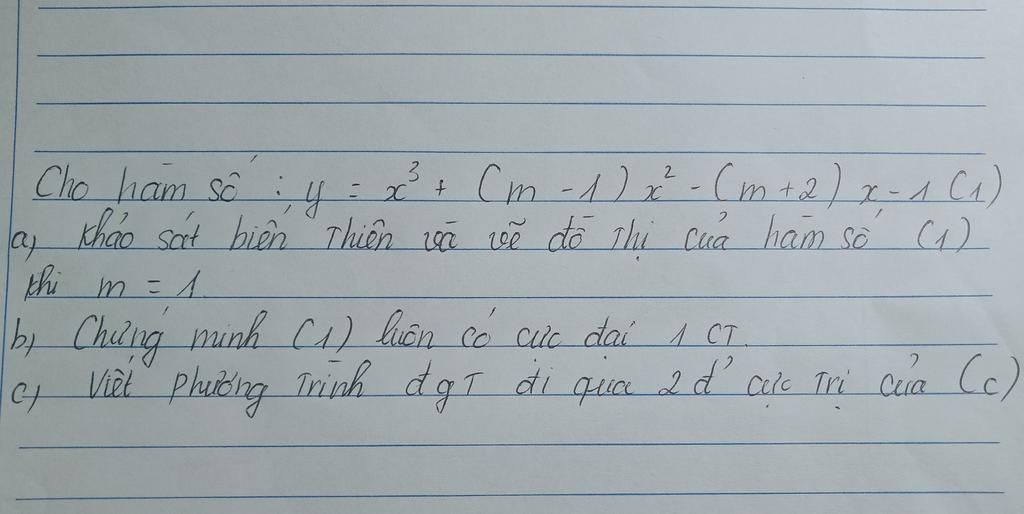 Cho hàm số : y = x³ + (m - 1) x² - (m + 2) x - 1 (1)
a) Khảo sát biến Thiên và vẽ đồ Thị của hàm số (1)
khi m = 1
b) Chứng minh (1) luôn có cực đại 1 CT.
c) Viết phương Trình đgT đi qua 2 đ' cực Trị của (C)